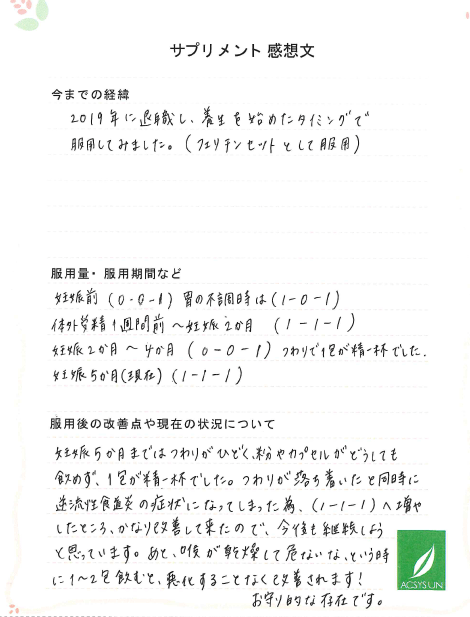 サプリメント 感想文
今までの経緯
2019年に退職し、養生を始めたタイミングで
服用してみました。(フェリチンセットとして服用)
服用量・服用期間など
妊娠前 (0-0-1) 胃の不調時は(1-0-1)
体外受精1週間前〜妊娠2か月 (1-1-1)
妊娠2か月〜4か月 (0-0-1) つわりで1包が精一杯でした.
妊娠5か月(現在) (1-1-1)
服用後の改善点や現在の状況について
妊娠5か月まではつわりがひどく、粉やカプセルがどうしても
飲めず、1包が精一杯でした。つわりが落ち着いたと同時に
逆流性食道炎の症状になってしまった為、(1-1-1)へ増や
したところ、かなり改善して来たので、今後も継続しよう
と思っています。あと、喉が乾燥して危ないな、という時
に1〜2包飲むと、悪化することなく改善されます!
お守り的な存在です。
ACSYSUN